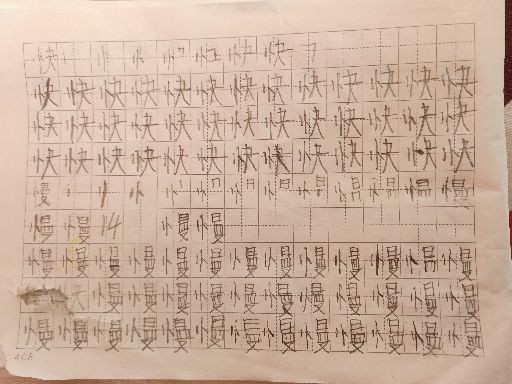 快 快 快
快 快 快 快 快 快 快 快 快 快 快 快 快
快 快 快 快 快 快 快 快 快 快 快 快 快
快 快 快 快 快 快 快 快 快 快 快 快 快
慢
慢 慢 14 慢 慢
慢 慢 慢 慢 慢 慢 慢 慢 慢 慢 慢 慢
慢 慢 慢 慢 慢 慢 慢 慢 慢 慢 慢
慢 慢 慢 慢 慢 慢 慢 慢 慢 慢 慢 慢 慢
408